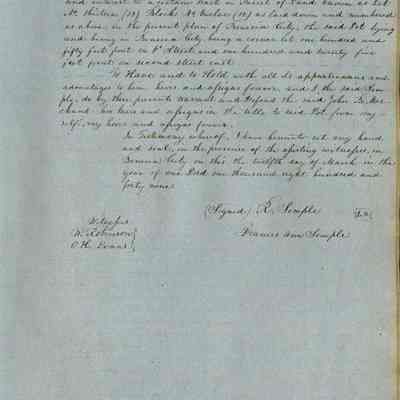 and interest to a certain tract or Parcel of Land known as Lot
No. thirteen (13) Block No. twelve (12) as laid down and numbered
as above, in the present plan of Benicia City, the said Lot lying
and being in Benicia City being a corner lot one hundred and
fifty feet front on F Street and one hundred and twenty five
feet front on second street east.
To Have and to Hold with all its appurtenances and
advantages to him heirs and assigns forever, and I the said Sem-
ple, do by these presents warrant and defend the said John B.
chand his heirs and assigns in the title to said Lot from my-
self, my heirs and assigns forever.
In Testimony whereof, I have hereunto set my hand
and seal, in the presence of the attesting witnesses, in
Benicia City on this the twelfth day of March in the
year of our Lord one thousand eight hundred and
forty nine.
(Signed) R. Semple
Frances Ann Semple
Witness
W. Robinson
O. H. Evans